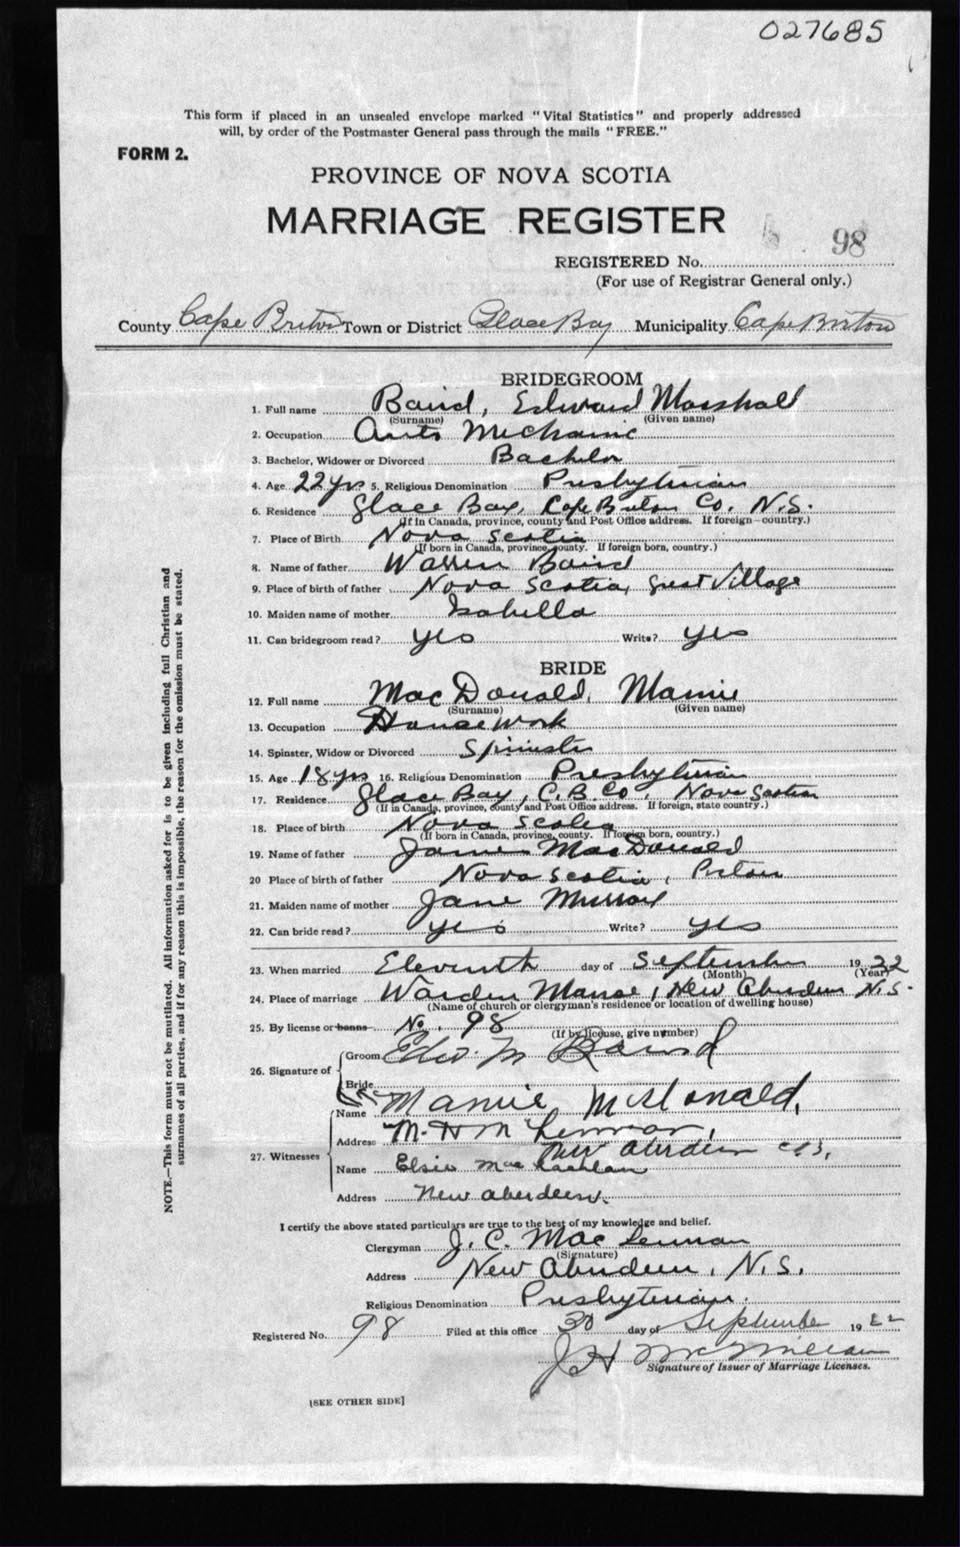 027685
This form if placed in an unsealed envelope marked "Vital Statistics" and properly addressed
will, by order of the Postmaster General pass through the mails "FREE."
FORM 2.
PROVINCE OF NOVA SCOTIA
MARRIAGE REGISTER
98
REGISTERED No.
(For use of Registrar General only.)
County Cape Breton Town or District Glace Bay Municipality Cape Breton
BRIDEGROOM
1. Full name Baird, Edward Marshall
(Surname) (Given name)
2. Occupation Auto Mechanic
3. Bachelor, Widower or Divorced Bachelor
4. Age 22 yrs 5. Religious Denomination Presbyterian
6. Residence Glace Bay, Cape Breton Co. N.S.
(If in Canada, province, county and Post Office address. If foreign—country.)
7. Place of Birth Nova Scotia
(If born in Canada, province, county. If foreign born, country.)
8. Name of father Warren Baird
9. Place of birth of father Nova Scotia, Great Village
10. Maiden name of mother Isabella
11. Can bridegroom read? yes Write? yes
BRIDE
12. Full name MacDonald, Mamie
(Surname) (Given name)
13. Occupation House Work
14. Spinster, Widow or Divorced Spinster
15. Age 18 yrs 16. Religious Denomination Presbyterian
17. Residence Glace Bay, C.B. Co Nova Scotia
(If in Canada, province, county and Post Office address. If foreign, state country.)
18. Place of birth Nova Scotia
(If born in Canada, province, county. If foreign born, country.)
19. Name of father James MacDonald
20 Place of birth of father Nova Scotia, Picton
21. Maiden name of mother Jane Murray
22. Can bride read? yes Write? yes
23. When married Eleventh day of September 1922
(Month) (Year)
24. Place of marriage Warden Manse, New Aberdeen N.S.
(Name of church or clergyman's residence or location of dwelling house)
25. By license or banns No. 98
(If by license, give number)
26. Signature of
Groom Edw M Baird
Bride Mamie McDonald,
27. Witnesses
Name M. H. McLennan,
Address New Aberdeen C.B.
Name Elsie MacLachlan
Address New Aberdeen.
I certify the above stated particulars are true to the best of my knowledge and belief.
Clergyman J. C. MacLennan
(Signature)
Address New Aberdeen, N.S.
Religious Denomination Presbyterian.
Registered No. 98 Filed at this office 30 day of September 1922
J H McMillan
Signature of Issuer of Marriage Licenses.
[SEE OTHER SIDE]
NOTE.—This form must not be mutilated. All information asked for is to be given including full Christian and
surnames of all parties, and if for any reason this is impossible, the reason for the omission must be stated.